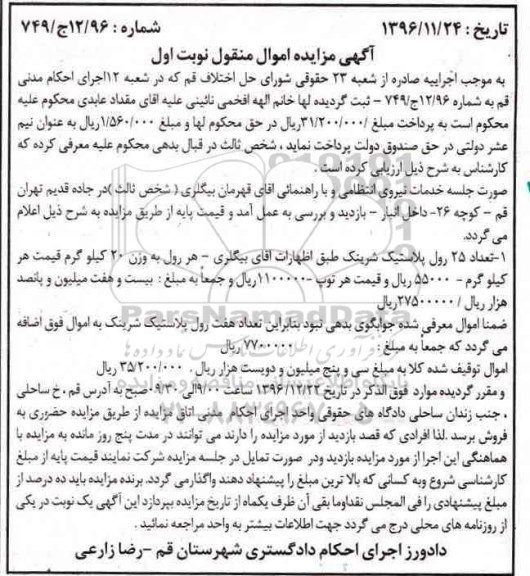 تاریخ : ۱۳۹۶/۱۱/۲۴ شماره : ۱۲/۹۶ج/۷۴۹
آگهی مزایده اموال منقول نوبت اول
به موجب اجراییه صادره از شعبه ۲۳ حقوقی شورای حل اختلاف قم که در شعبه ۱۲اجرای احکام مدنی
قم به شماره ۱۲/۹۶ج/۷۴۹ - ثبت گردیده لها خانم الهه افخمی نائینی علیه اقای مقداد عابدی محکوم علیه
محکوم است به پرداخت مبلغ /۳۱/۲۰۰/۰۰۰ریال در حق محکوم لها و مبلغ ۱/۵۶۰/۰۰۰ریال به عنوان نیم
عشر دولتی در حق صندوق دولت پرداخت نماید ، شخص ثالث در قبال بدهی محکوم علیه معرفی کرده که
کارشناس به شرح ذیل ارزیابی کرده است .
صورت جلسه خدمات نیروی انتظامی و با راهنمائی اقای قهرمان بیگلری ( شخص ثالث )در جاده قدیم تهران
قم – کوچه ۲۶- داخل انبار – بازدید و بررسی به عمل آمد و قیمت پایه از طریق مزایده به شرح ذیل اعلام
می گردد.
۱-تعداد ۲۵ رول پلاستیک شرینک طبق اظهارات اقای بیگلری – هر رول به وزن ۲۰ کیلو گرم قیمت هر
کیلو گرم - ۵۵۰۰۰ ریال و قیمت هر توپ -۱۱۰۰۰۰۰ریال و جمعاً به مبلغ : بیست و هفت میلیون و پانصد
هزار ریال /۲۷۵۰۰۰۰۰ریال
ضمنا اموال معرفی شده جوابگوی بدهی نبود بنابراین تعداد هفت رول پلاستیک شرینک به اموال فوق اضافه
می گردد که جمعاً به مبلغ : ۷۷۰۰۰۰۰ ریال
اموال توقیف شده کلا به مبلغ سی و پنج میلیون و دویست هزار ریال . ۳۵/۲۰۰/۰۰۰ ریال
و مقرر گردیده موارد فوق الذکر در تاریخ ۱۳۹۶/۱۲/۲۲ ساعت ۹/۰۰الی ۹/۳۰صبح به آدرس قم ، خ ساحلی
، جنب زندان ساحلی دادگاه های حقوقی واحد اجرای احکام مدنی اتاق مزایده از طریق مزایده حضوری به
فروش برسد .لذا افرادی که قصد بازدید از مورد مزایده را دارند می توانند در مدت پنج روز مانده به مزایده با
هماهنگی این اجرا از مورد مزایده بازدید ودر صورت تمایل در جلسه مزایده شرکت نمایند قیمت پایه از مبلغ
کارشناسی شروع وبه کسانی که بالا ترین مبلغ را پیشنهاد دهند واگذارمی گردد. برنده مزایده باید ده درصد از
مبلغ پیشنهادی را فی المجلس نقداوما بقی آن ظرف یکماه از تاریخ مزایده بپردازد این آگهی یک نوبت در یکی
از روزنامه های محلی درج می گردد جهت اطلاعات بیشتر به واحد مراجعه نمائید .
دادورز اجرای احکام دادگستری شهرستان قم –رضا زارعی
ParsNamadData